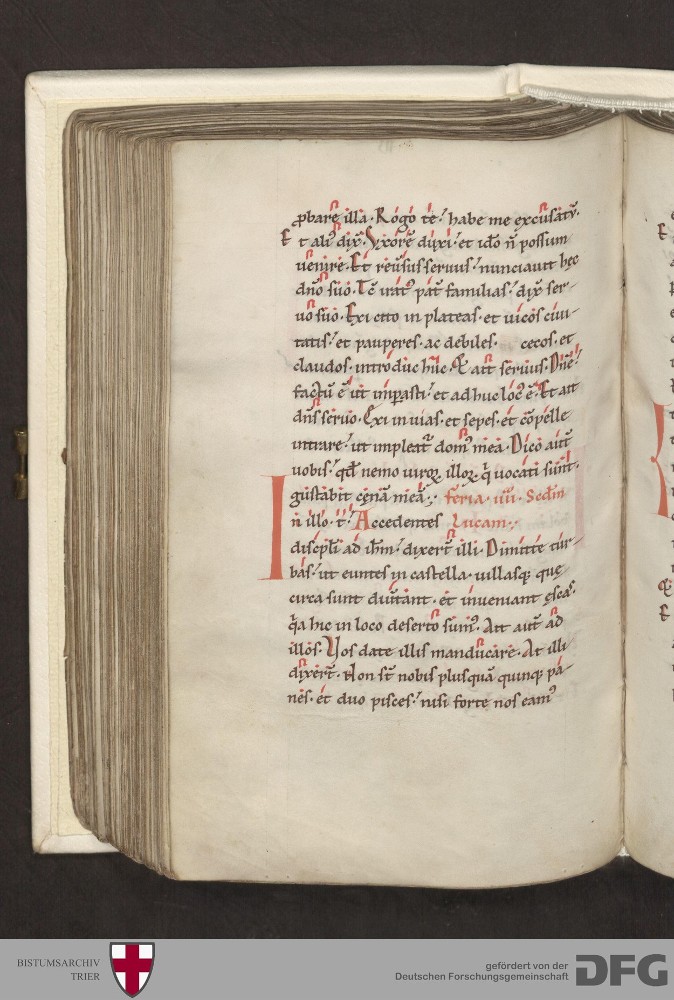 ꝓbare illa. Rogo te? habe me excusatū.
Et aliꝰ dix̄. Vxorē duxi? et idō n̄ possum
uenire. Et reuersus seruus? nunciauit hec
dn̄o suo. Tc̄ iratꝰ pat̄ familias? dix̄ ser-
uo suo. Exi cito in plateas. et uicos ciui-
tatis? et pauperes. ac debiles. cecos. et
claudos. introduc huc. Et ait seruus. Dn̄e?
factū ē ut imꝑasti? et adhuc locꝰ ē. Et ait
dn̄s seruo. Exi in uias. et sepes. et cōpelle
intrare? ut impleat᷑ domꝰ mea. Dico aut̄
uobis? qd̄ nemo uiroꝝ illoꝝ. q̇ uocati sunt.
gustabit cenā meā. Feria. iiii. Scd̄m
In illo. t̄? Accedentes Lucam.
discipli ad ihm̄? dixert̄ illi. Dimitte tur-
bas? ut euntes in castella. uillasqꝫ que
circa sunt diu̾tant. et inueniant escas.
q̄a hic in loco deserto sumꝰ. Ait aut̄ ad
illos. Vos date illis manducare. At illi
dixert̄. Non st̄ nobis plusquā quinqꝫ pa-
nes. et duo pisces? nisi forte nos eamꝰ
BISTUMSARCHIV
TRIER
gefördert von der
Deutschen Forschungsgemeinschaft
DFG